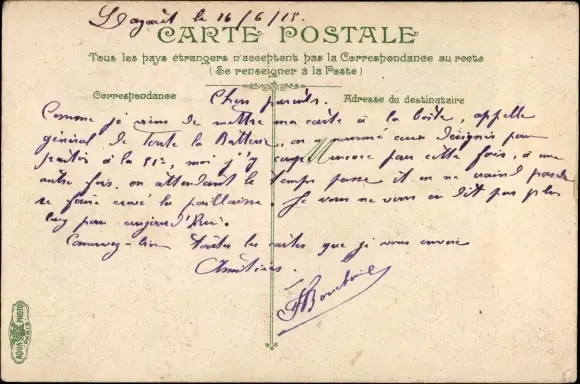 le 16/6/15
CARTE POSTALE
Tous les pays étrangers n'acceptent pas la Correspondance au recto
(Se renseigner à la Poste)
Correspondance
Adresse du destinataire
Chers parents.
Comme je viens de mettre ma carte à la boîte, appelle
général de toute la Batterie, on a nommé ceux désignés pour
partir à la moi j'y coupe encore pour cette fois, à une
autre fois, en attendant le temps passe et on ne craint pas de
se faire crevé la paillasse Je vous ne vous en dit pas plus
long pour aujourd'hui.
Conservez-bien toutes les cartes que je vous envoie
Amitiés.
AQUA PHOTO
PARIS